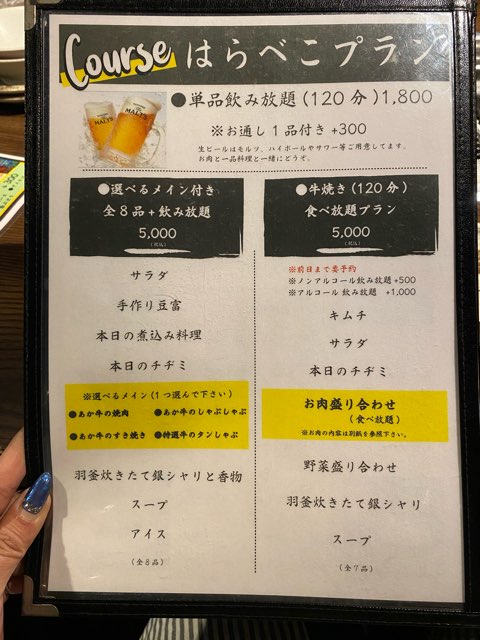 Course はらぺこプラン
●単品飲み放題(120分)1,800
※お通し1品付き+300
生ビールはモルツ、ハイボールやサワー等ご用意してます。
お肉と一品料理と一緒にどうぞ。
MALT'S
●選べるメイン付き
全8品+飲み放題
5,000
(税込)
サラダ
手作り豆富
本日の煮込み料理
本日のチヂミ
※選べるメイン(1つ選んで下さい)
●あか牛の焼肉 ●あか牛のしゃぶしゃぶ
●あか牛のすき焼き ●特選牛のタンしゃぶ
羽釜炊きたて銀シャリと香物
スープ
アイス
(全8品)
●牛焼き(120分)
食べ放題プラン
5,000
(税込)
※前日まで要予約
※ノンアルコール飲み放題+500
※アルコール飲み放題 +1,000
キムチ
サラダ
本日のチヂミ
お肉盛り合わせ
(食べ放題)
※お肉の内容は別紙を参照下さい。
野菜盛り合わせ
羽釜炊きたて銀シャリ
スープ
(全7品)